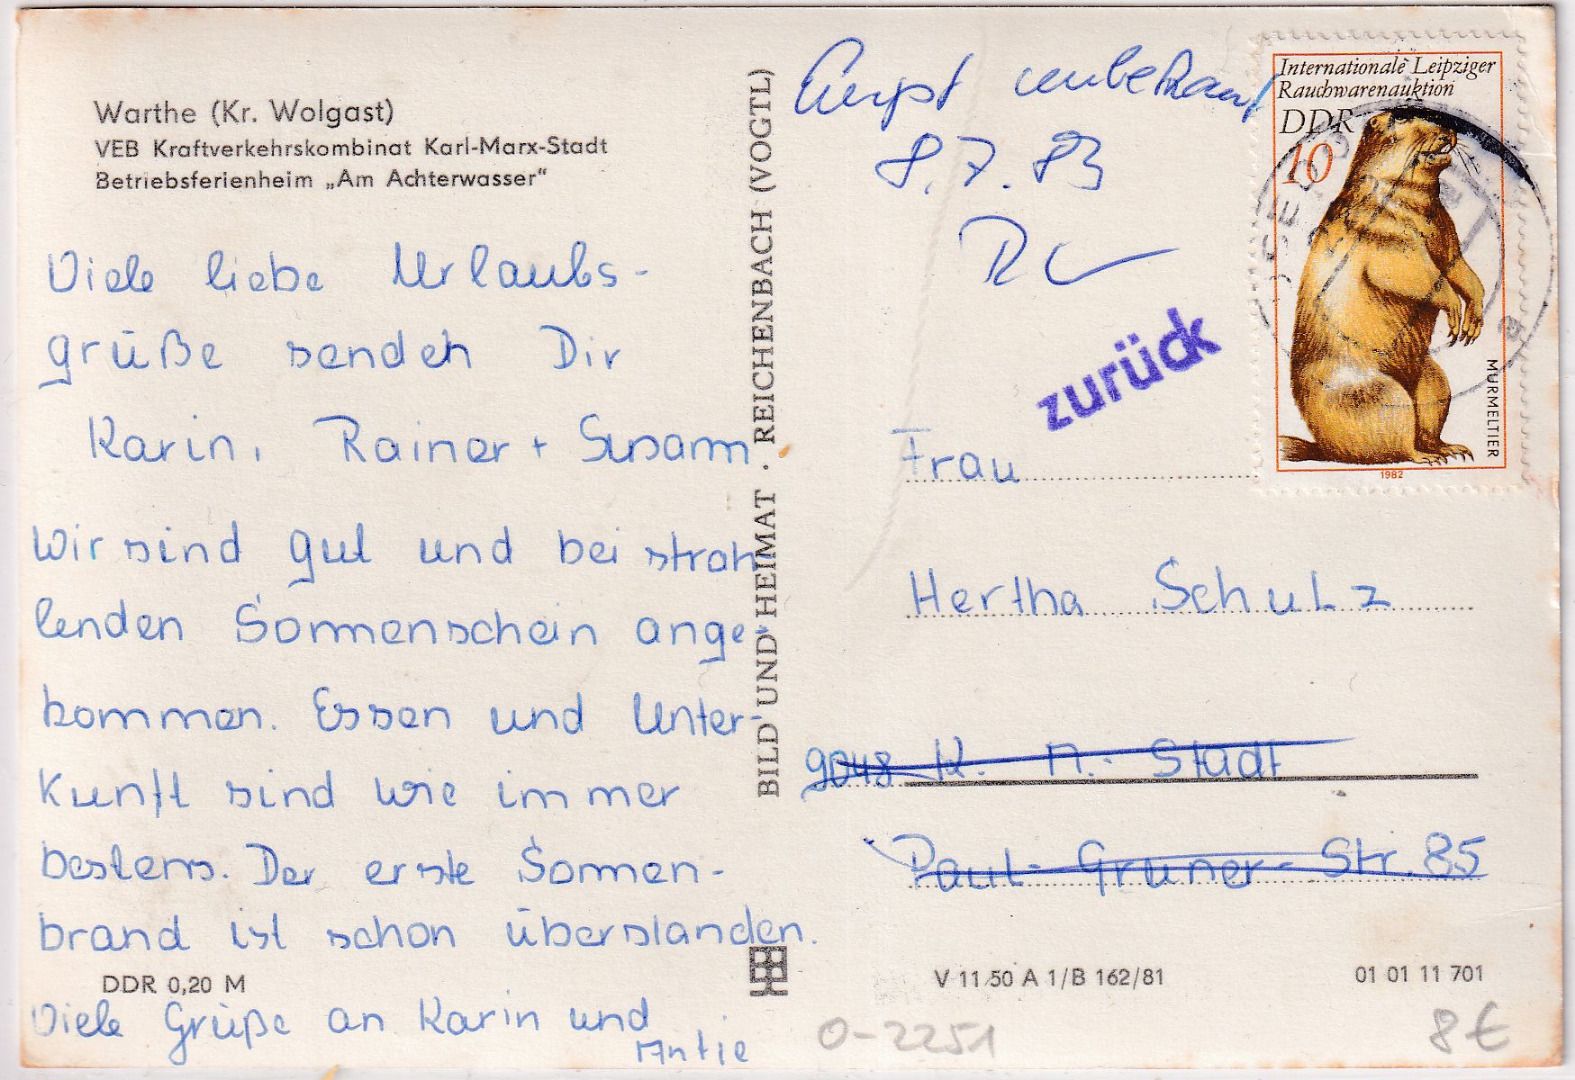 Warthe (Kr. Wolgast)
VEB Kraftverkehrskombinat Karl-Marx-Stadt
Betriebsferienheim „Am Achterwasser"
Viele liebe Urlaubs-
grüße senden Dir
Karin, Rainer + Susann
Wir sind gut und bei strah
lenden Sonnenschein ange-
kommen. Essen und Unter-
kunft sind wie immer
bestens. Der erste Sonnen-
brand ist schon überstanden.
DDR 0,20 M
Viele Grüße an Karin und
Antje
BILD UND HEIMAT · REICHENBACH (VOGTL)
unbekannt
8.7.83
zurück
Internationale Leipziger
Rauchwarenauktion
DDR
10
MURMELTIER
1982
Frau
Hertha Schulz
9048 K. M.-Stadt
Paul-Gruner-Str. 85
V 11 50 A 1/B 162/81
01 01 11 701
O-2251
8€